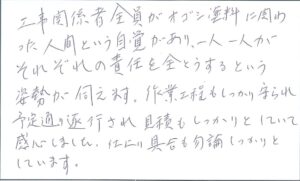 工事関係者全員がオゴシ塗料に関わ
った人間という自覚があり、一人一人が
それぞれの責任を全とうするという
姿勢が伺えます。作業工程もしっかり守られ
予定通り遂行され見積もしっかりとしていて
感心しました。仕上り具合も勿論しっかりと
しています。